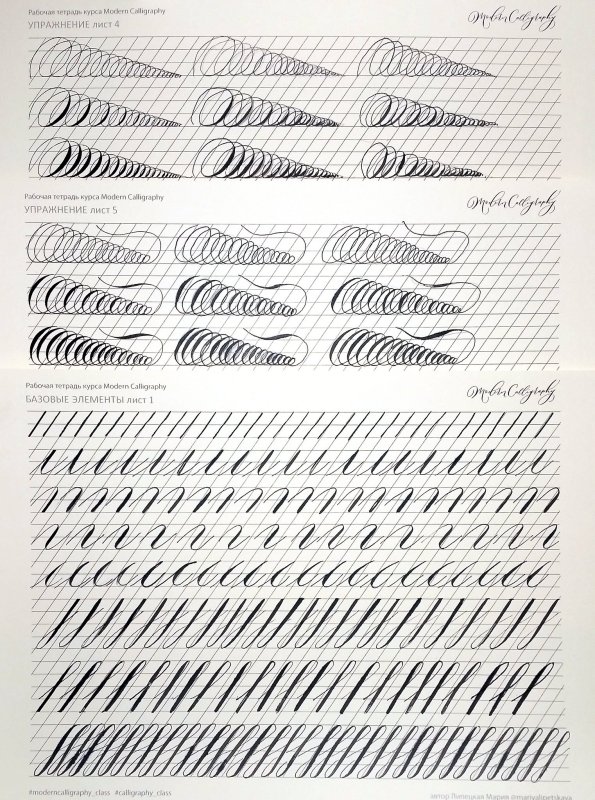 Рабочая тетрадь курса Modern Calligraphy
Modern Calligraphy
УПРАЖНЕНИЕ лист 4
Рабочая тетрадь курса Modern Calligraphy
Modern Calligraphy
УПРАЖНЕНИЕ лист 5
Рабочая тетрадь курса Modern Calligraphy
Modern Calligraphy
БАЗОВЫЕ ЭЛЕМЕНТЫ лист 1
#moderncalligraphy_class #calligraphy_class
автор Липецкая Мария @manyalipetskaya